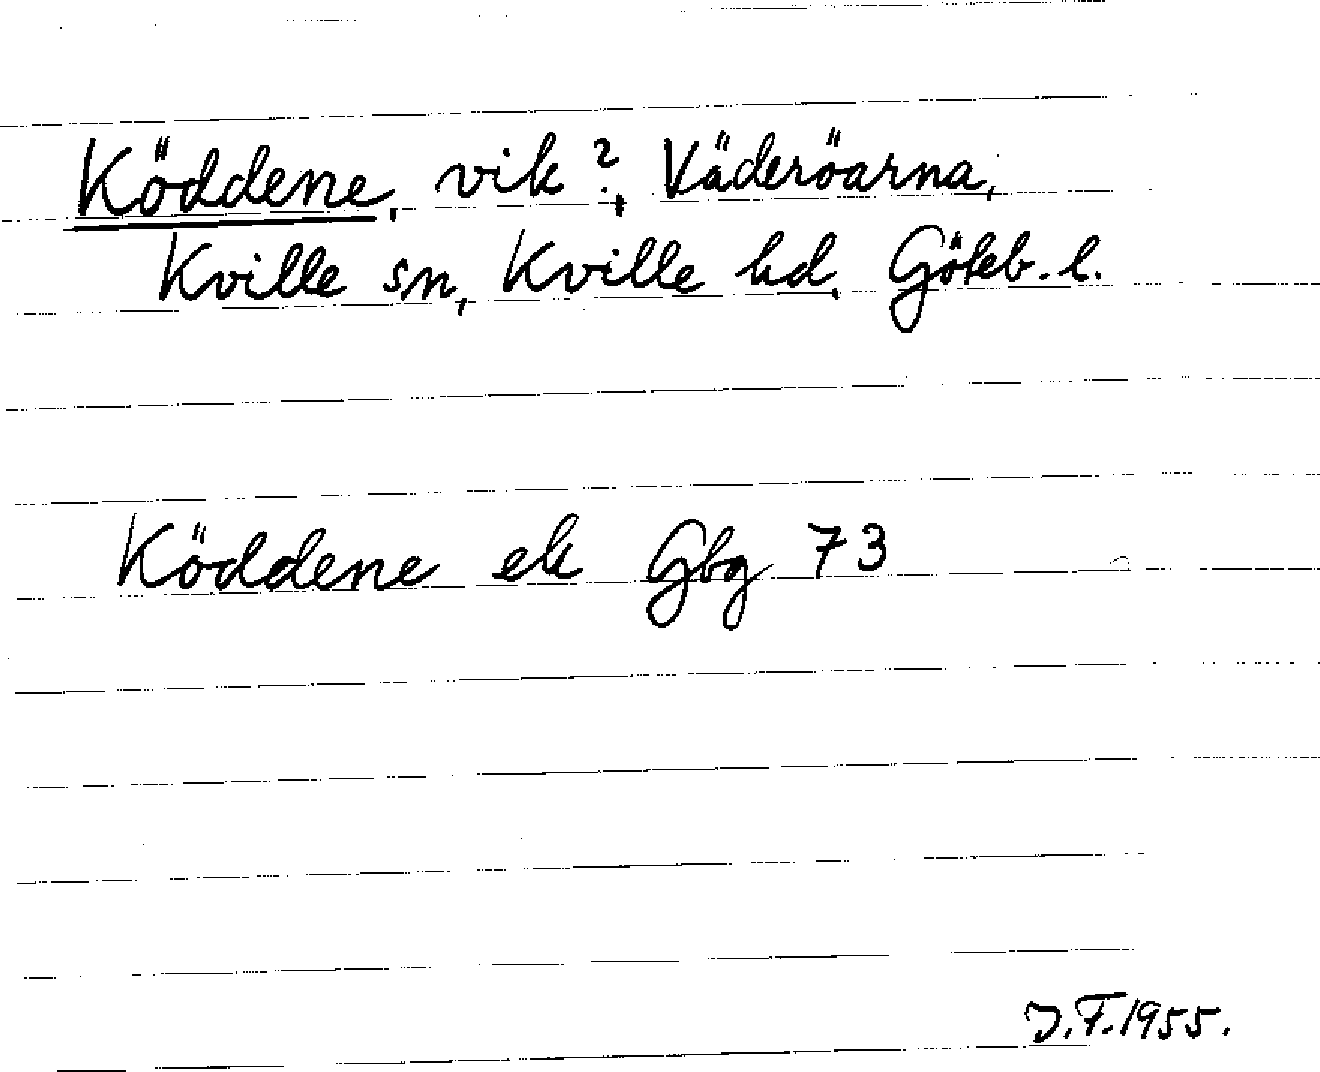 Köddene, vik?, Väderöarna,
Kville sn, Kville hd, Göteb. l.
Köddene ek Gbg 73
J.F. 1955.